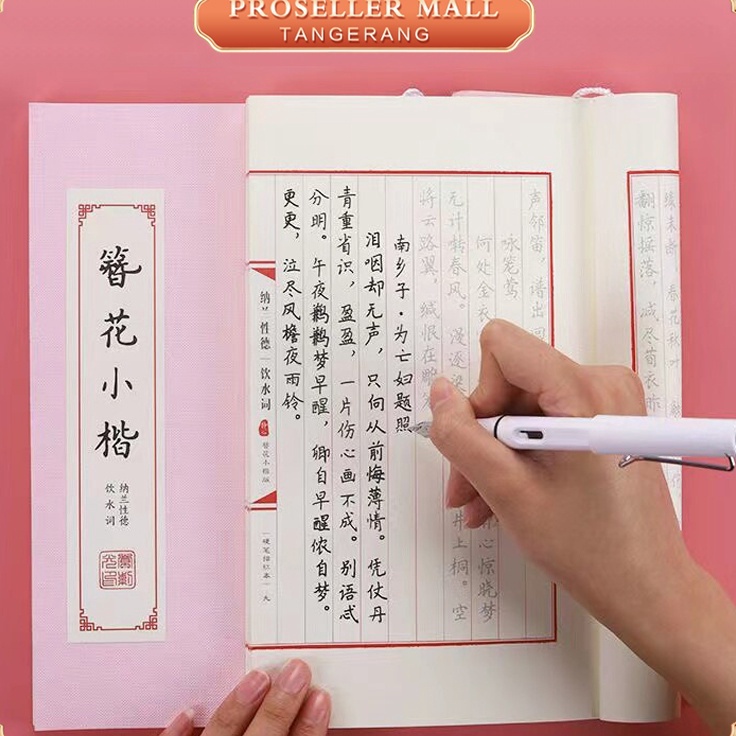 PROSELLER MALL
TANGERANG
簪花小楷
纳兰性德
饮水词
翻惊摇落，减尽荀衣昨
声邻笛，谱出回
咏笼莺
何处金衣
心惊晓梦
无计转春风。漫逐梁
井上桐。空
将云路翼，缄恨在雕
南乡子·为亡妇题照
泪咽却无声，只向从前悔薄情。凭仗丹
青重省识，盈盈，一片伤心画不成。别语忒
分明。午夜鹣鹣梦早醒，卿自早醒侬自梦。
更更，泣尽风檐夜雨铃。
纳兰性德 | 饮水词
簪花小楷版
硬笔描红本 九